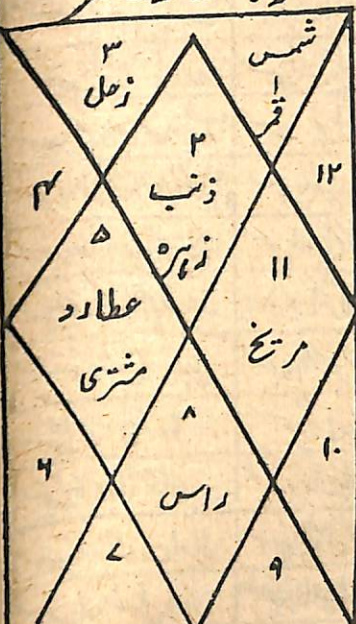 شمس
۱
قمر
۳
زحل
۲
ذنب
زہرہ
۱۲
۴
۵
عطارد
مشتری
۱۱
مریخ
۸
راس
۱۰
۶
۷
۹